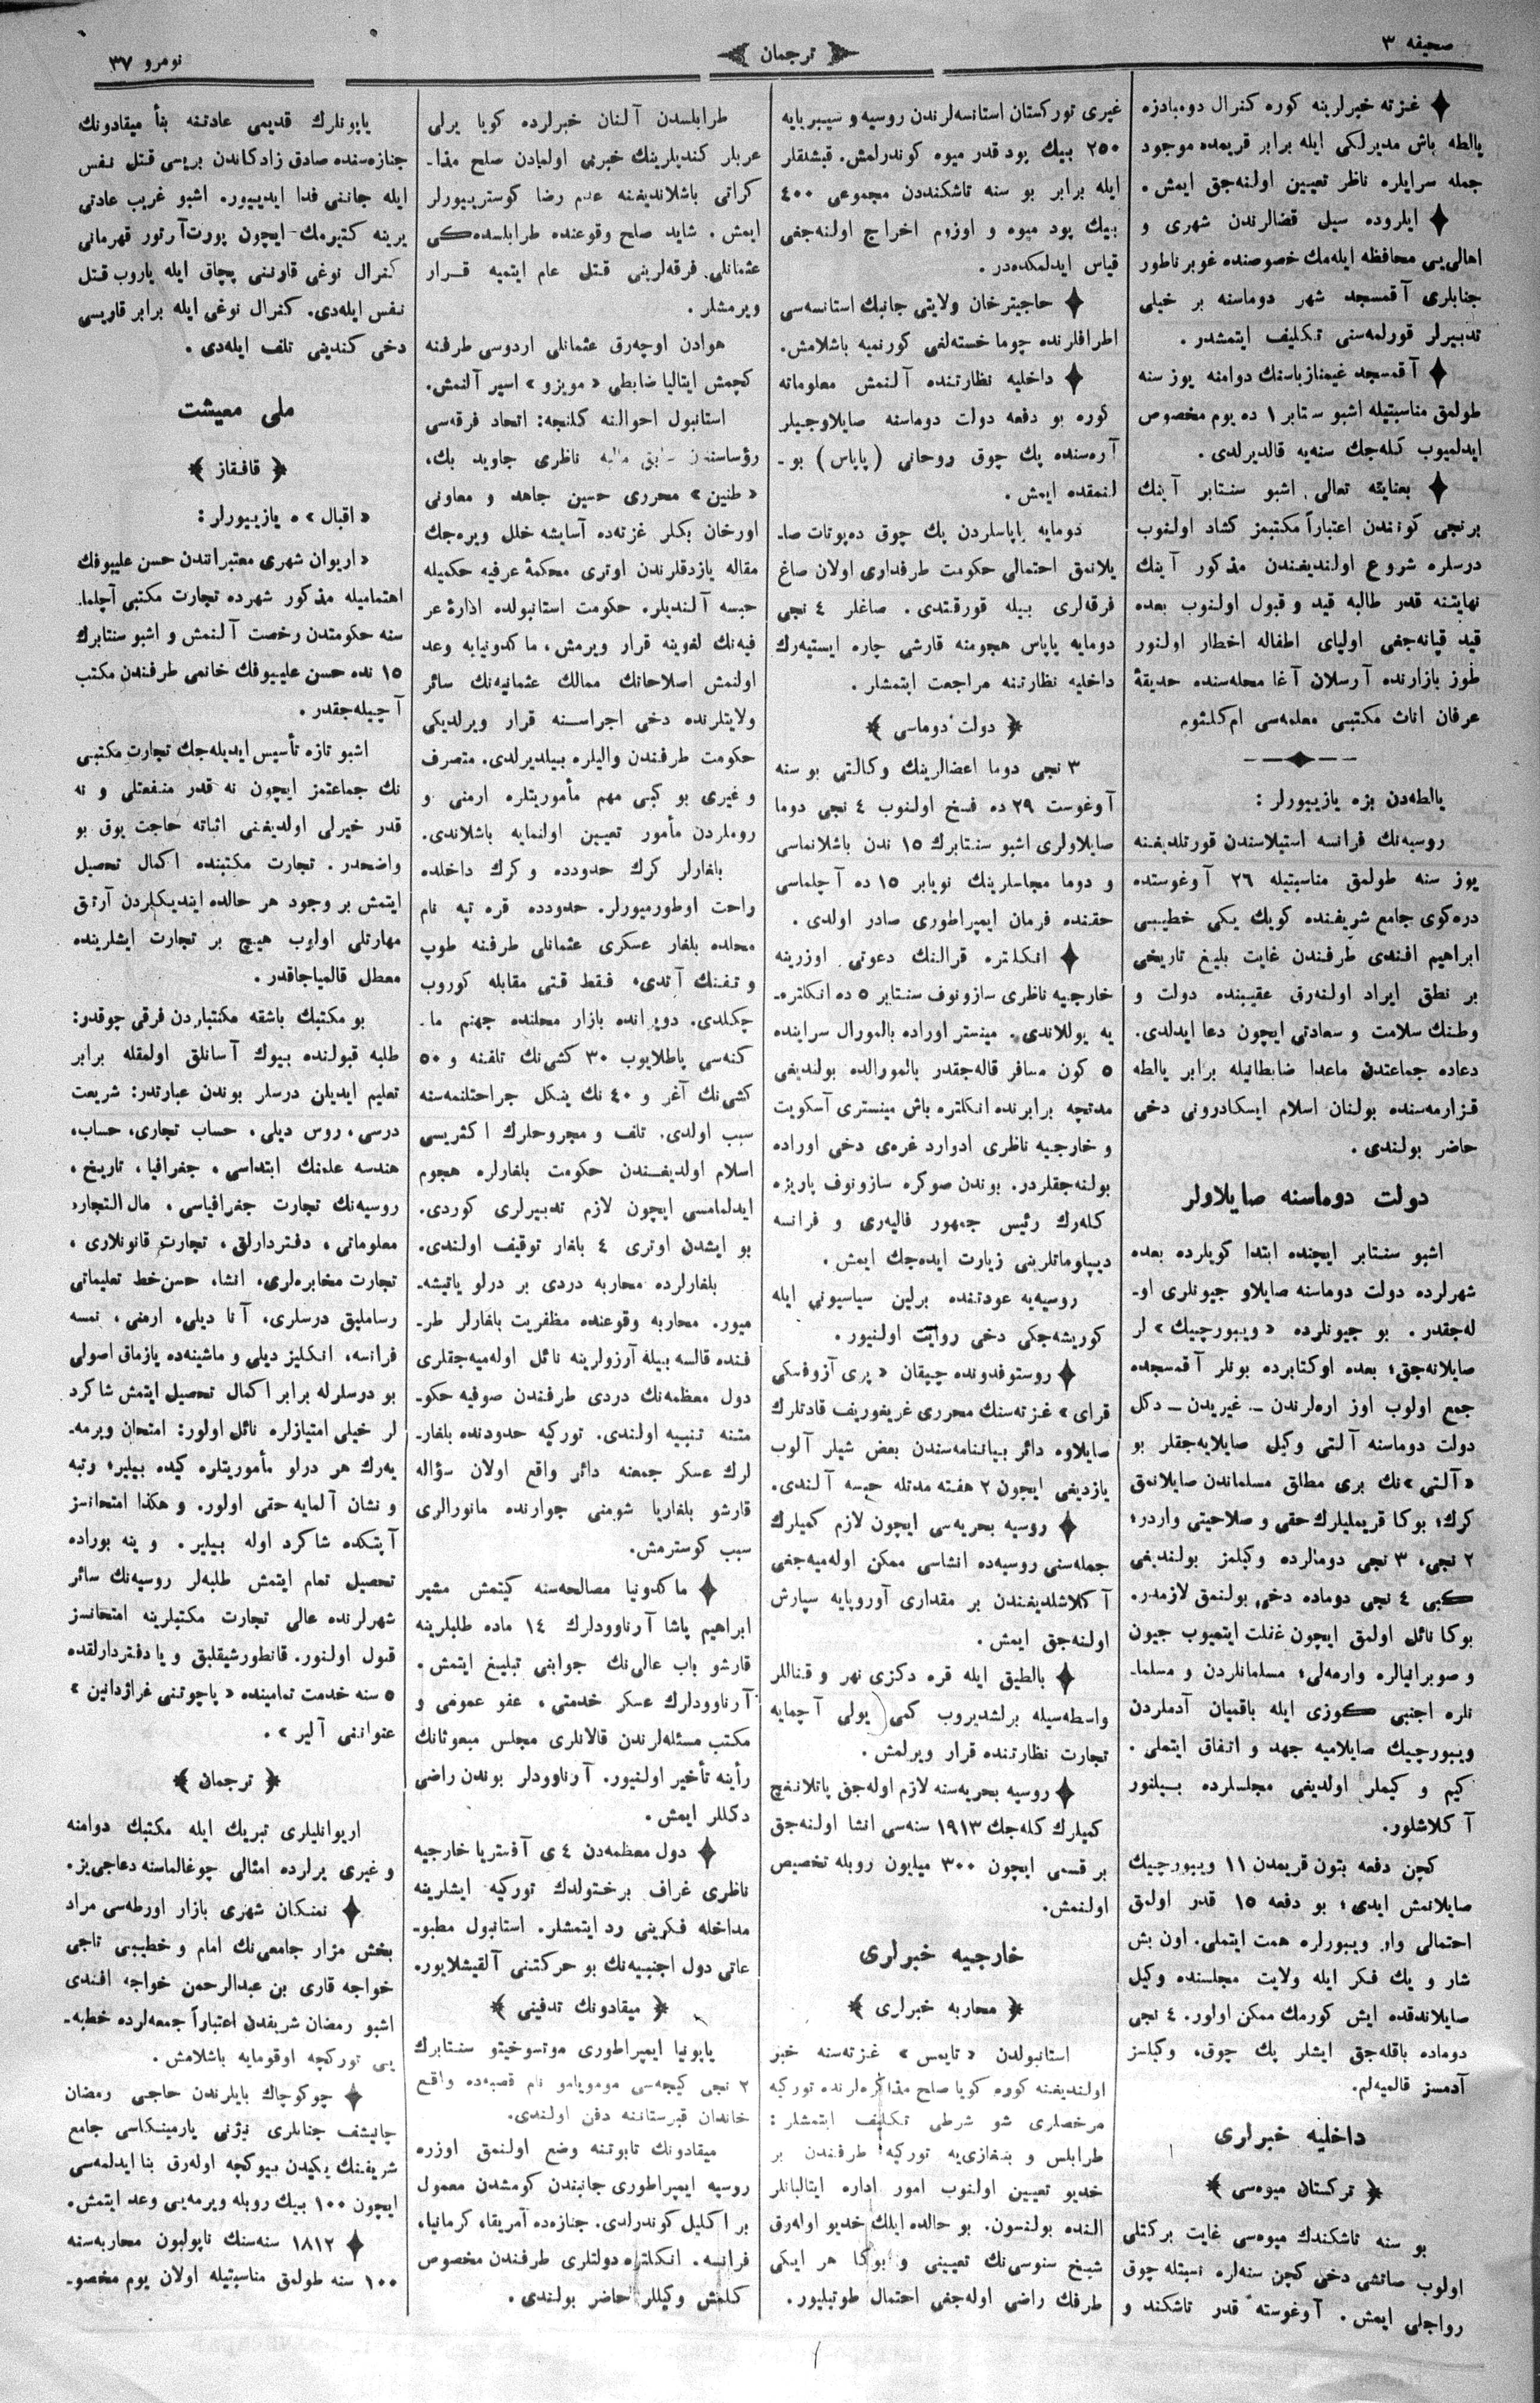 صحیفه ۳
ترجمان
نومرو ۳۷
غزته خبرلرینه كوره كنرال دومبادزه
یالطه باش مدیرلكی ایله برابر قریمده موجود
جمله سرایلره ناظر تعیین اولنه‌جق ایمش.
ایلروده سیل قضالرندن شهری و
اهالی‌یی محافظه ایله‌مك خصوصنده غوبرناطور
جنابلری آقمسجد شهر دوماسنه بر خیلی
تدبیرلر قورلمه‌سنی تكلیف ایتمشدر.
آقمسجد غیمنازیاسنك دوامنه یوز سنه
طولمق مناسبتیله اشبو سنتابر ۱ ده یوم مخصوص
ایدلمیوب كله‌جك سنه‌یه قالدیرلدی.
بعنایته تعالی اشبو سنتابر آینك
برنجی كونندن اعتباراً مكتبمز كشاد اولنوب
درسلره شروع اولندیغندن مذكور آینك
نهایتنه قدر طالبه قید و قبول اولنوب بعده
قید قپانه‌جغی اولیای اطفاله اخطار اولنور
طوز بازارنده آرسلان آغا محله‌سنده حدیقهٔ
عرفان اناث مكتبی معلمه‌سی ام كلثوم
یالطه‌دن بزه یازییورلر:
روسیه‌نك فرانسه استیلاسندن قورتلدیغنه
یوز سنه طولمق مناسبتیله ۲۶ آوغوستده
دره‌كوی جامع شریفنده كویك یكی خطیبی
ابراهیم افندی طرفندن غایت بلیغ تاریخی
بر نطق ایراد اولنه‌رق عقیبنده دولت و
وطنك سلامت و سعادتی ایچون دعا ایدلدی.
دعاده جماعتدن ماعدا ضابطانیله برابر یالطه
قزارمه‌سنده بولنان اسلام ایسكادرونی دخی
حاضر بولندی.
دولت دوماسنه صایلاولر
اشبو سنتابر ایچنده ابتدا كویلرده بعده
شهرلرده دولت دوماسنه صایلاو جیونلری او-
له‌جقدر. بو جیونلرده «ویبورچیك» لر
صایلانه‌جق؛ بعده اوكتابرده بونلر آقمسجده
جمع اولوب اوز اره‌لرندن – غیریدن – دكل
دولت دوماسنه آلتی وكیل صایلایه‌جقلر بو
«آلتی» نك بری مطلق مسلماندن صایلانمق
كرك؛ بوكا قریملیلرك حقی و صلاحیتی واردر؛
۲ نجی، ۳ نجی دومالرده وكیلمز بولندیغی
كبی ٤ نجی دوماده دخی بولنمق لازمدر.
بوكا نائل اولمق ایچون غفلت ایتمیوب جیون
و صوبرانیالره وارمه‌لی؛ مسلمانلردن و مسلما-
نلره اجنبی كوزی ایله باقمیان آدملردن
ویبورچیك صایلامیه جهد و اتفاق ایتملی.
كیم و كیملر اولدیغی مجلسلرده بیلنور
آكلاشلور.
كچن دفعه بتون قریمدن ۱۱ ویبورچیك
صایلانمش ایدی؛ بو دفعه ۱۵ قدر اولمق
احتمالی وار. ویبورلره همت ایتملی. اون بش
شار و یك فكر ایله ولایت مجلسنده وكیل
صایلاندقده ایش كورمك ممكن اولور. ٤ نجی
دوماده باقله‌جق ایشلر پك چوق، وكیلسز
آدمسز قالمیه‌لم.
داخلیه خبرلری
تركستان میوه‌سی
بو سنه تاشكندك میوه‌سی غایت بركتلی
اولوب صاتشی دخی كچن سنه‌لره نسبتله چوق
رواجلی ایمش. آوغوسته قدر تاشكند و
غیری توركستان استانسه‌لرندن روسیه و سیبریایه
۲۵۰ بیك پود قدر میوه كوندرلمش. قیشلقلر
ایله برابر بو سنه تاشكنددن مجموعی ٤۰۰
بیك پود میوه و اوزوم اخراج اولنه‌جغی
قیاس ایدلمكده‌در.
حاجیترخان ولایتی جانبك استانسه‌سی
اطرافلرنده چوما خسته‌لغی كورنمیه باشلامش.
داخلیه نظارتنده آلنمش معلوماته
كوره بو دفعه دولت دوماسنه صایلاوجیلر
آره‌سنده پك چوق روحانی (پاپاس) بو-
لنمقده ایمش.
دومایه پاپاسلردن پك چوق ده‌پوتات صا-
یلانمق احتمالی حكومت طرفداری اولان صاغ
فرقه‌لری بیله قورقتدی. صاغلر ٤ نجی
دومایه پاپاس هجومنه قارشی چاره ایستیه‌رك
داخلیه نظارتنه مراجعت ایتمشلر.
دولت دوماسی
۳ نجی دوما اعضالرینك وكالتی بو سنه
آوغوست ۲۹ ده فسخ اولنوب ٤ نجی دوما
صایلاولری اشبو سنتابرك ۱۵ ندن باشلانماسی
و دوما مجلسلرینك نویابر ۱۵ ده آچلماسی
حقنده فرمان ایمپراطوری صادر اولدی.
انكلتره قرالنك دعوتی اوزرینه
خارجیه ناظری سازونوف سنتابر ۵ ده انكلتره-
یه یوللاندی. مینستر اوراده بالمورال سراینده
۵ كون مسافر قاله‌جقدر بالمورالده بولندیغی
مدتچه برابرنده انكلتره باش مینستری آسكویت
و خارجیه ناظری ادوارد غره‌ی دخی اوراده
بولنه‌جقلردر. بوندن صوكره سازونوف پاریزه
كله‌رك رئیس جمهور فالیه‌ری و فرانسه
دیپلوماتلرینی زیارت ایده‌جك ایمش.
روسیه‌یه عودتنده برلین سیاسیونی ایله
كوریشه‌جكی دخی روایت اولنیور.
روستوفدونده چیقان «پری آزوفسكی
قرای» غزته‌سنك محرری غریغوریف قادتلرك
صایلاوه دائر بیاننامه‌سندن بعض شیلر آلوب
یازدیغی ایچون ۲ هفته مدتله حبسه آلندی.
روسیه بحریه‌سی ایچون لازم كمیلرك
جمله‌سنی روسیه‌ده انشاسی ممكن اوله‌میه‌جغی
آكلاشلدیغندن بر مقداری آوروپایه سپارش
اولنه‌جق ایمش.
بالطیق ایله قره دكزی نهر و قناللر
واسطه‌سیله برلشدیروب كمی یولی آچمایه
تجارت نظارتنده قرار ویرلمش.
روسیه بحریه‌سنه لازم اوله‌جق پاتلانغچ
كمیلرك كله‌جك ۱۹۱۳ سنه‌سی انشا اولنه‌جق
بر قسمی ایچون ۳۰۰ میلیون روبله تخصیص
اولنمش.
خارجیه خبرلری
محاربه خبرلری
استانبولدن «تایمس» غزته‌سنه خبر
اولندیغنه كوره كویا صلح مذاكره‌لرنده توركیه
مرخصلری شو شرطی تكلیف ایتمشلر:
طرابلس و بنغازی‌یه توركیه طرفندن بر
خدیو تعیین اولنوب امور اداره ایتالیانلر
النده بولنسون. بو حالده ایلك خدیو اوله‌رق
شیخ سنوسی‌نك تعیینی و بوكا هر ایكی
طرفك راضی اوله‌جغی احتمال طوتیلیور.
طرابلسدن آلنان خبرلرده كویا یرلی
عربلر كندیلرینك خبری اولمادن صلح مذا-
كراتی باشلاندیغنه عدم رضا كوستریورلر
ایمش. شاید صلح وقوعنده طرابلسده‌كی
عثمانلی فرقه‌لرینی قتل عام ایتمیه قرار
ویرمشلر.
هوادن اوچه‌رق عثمانلی اردوسی طرفنه
كچمش ایتالیا ضابطی «مویزو» اسیر آلنمش.
استانبول احوالنه كلنجه: اتحاد فرقه‌سی
رؤساسندن سابق مالیه ناظری جاوید بك،
«طنین» محرری حسین جاهد و معاونی
اورخان بكلر غزته‌ده آسایشه خلل ویره‌جك
مقاله یازدقلرندن اوتری محكمهٔ عرفیه حكمیله
حبسه آلندیلر. حكومت استانبولده ادارهٔ عر
فیه‌نك لغوینه قرار ویرمش، ماكدونیایه وعد
اولنمش اصلاحاتك ممالك عثمانیه‌نك سائر
ولایتلرنده دخی اجراسنه قرار ویرلدیكی
حكومت طرفندن والیلره بیلدیرلدی. متصرف
و غیری بو كبی مهم مأموریتلره ارمنی و
روملردن مأمور تعیین اولنمایه باشلاندی.
بلغارلر كرك حدودده و كرك داخلده
راحت اوطورمیورلر. حدودده قره تپه نام
محلده بلغار عسكری عثمانلی طرفنه طوپ
و تفنك آتدی، فقط قتی مقابله كوروب
چكلدی. دویرانده بازار محلنده جهنم ما-
كنه‌سی پاطلایوب ۳۰ كشی‌نك تلفنه و ۵۰
كشی‌نك آغر و ٤۰ نك ینكل جراحتلنمه‌سنه
سبب اولدی. تلف و مجروحلرك اكثریسی
اسلام اولدیغندن حكومت بلغارلره هجوم
ایدلمامسی ایچون لازم تدبیرلری كوردی.
بو ایشدن اوتری ٤ بلغار توقیف اولندی.
بلغارلرده محاربه دردی بر درلو یاتیشه-
میور. محاربه وقوعنده مظفریت بلغارلر طر-
فنده قالسه بیله آرزولرینه نائل اوله‌میه‌جقلری
دول معظمه‌نك دردی طرفندن صوفیه حكو-
متنه تنبیه اولندی. توركیه حدودنده بلغار-
لرك عسكر جمعنه دائر واقع اولان سؤاله
قارشو بلغاریا شومنی جوارنده مانورالری
سبب كوسترمش.
ماكدونیا مصالحه‌سنه كیتمش مشیر
ابراهیم پاشا آرناوودلرك ۱٤ ماده طلبلرینه
قارشو باب عالی‌نك جوابنی تبلیغ ایتمش.
آرناوودلرك عسكر خدمتی، عفو عمومی و
مكتب مسئله‌لرندن قالانلری مجلس مبعوثانك
رأینه تأخیر اولنیور. آرناوودلر بوندن راضی
دكللر ایمش.
دول معظمه‌دن ٤ ی آفستریا خارجیه
ناظری غراف برختولدك توركیه ایشلرینه
مداخله فكرینی رد ایتمشلر. استانبول مطبو-
عاتی دول اجنبیه‌نك بو حركتنی آلقیشلایور.
میقادونك تدفینی
یاپونیا ایمپراطوری موتسوخیتو سنتابرك
۲ نجی كیجه‌سی مومویامو نام قصبه‌ده واقع
خاندان قبرستاننه دفن اولندی.
میقادونك تابوتنه وضع اولنمق اوزره
روسیه ایمپراطوری جانبندن كومشدن معمول
بر اكلیل كوندرلدی. جنازه‌ده آمریقا، كرمانیا،
فرانسه. انكلتره دولتلری طرفندن مخصوص
كلمش وكیللر حاضر بولندی.
یاپونلرك قدیمی عادتنه بنأ میقادونك
جنازه‌سنده صادق زادكاندن بریسی قتل نفس
ایله جاننی فدا ایدییور. اشبو غریب عادتی
یرینه كتیرمك ایچون پورت‌آرتور قهرمانی
كنرال نوغی قارننی پچاق ایله یاروب قتل
نفس ایله‌دی. كنرال نوغی ایله برابر قاریسی
دخی كندینی تلف ایله‌دی.
ملی معیشت
قافقاز
«اقبال» ه یازییورلر:
«اریوان شهری معتبراتندن حسن علیبوفك
اهتمامیله مذكور شهرده تجارت مكتبی آچلما-
سنه حكومتدن رخصت آلنمش و اشبو سنتابرك
۱۵ نده حسن علیبوفك خانمی طرفندن مكتب
آچیله‌جقدر.
اشبو تازه تأسیس ایدیله‌جك تجارت مكتبی
نك جماعتمز ایچون نه قدر منفعتلی و نه
قدر خیرلی اولدیغنی اثباته حاجت یوق بو
واضحدر. تجارت مكتبنده اكمال تحصیل
ایتمش بر وجود هر حالده ایندیكلردن آرتق
مهارتلی اولوب هیچ بر تجارت ایشلرینده
معطل قالمیاجاقدر.
بو مكتبك باشقه مكتبلردن فرقی چوقدر:
طلبه قبولنده بیوك آسانلق اولمقله برابر
تعلیم ایدیلن درسلر بوندن عبارتدر: شریعت
درسی، روس دیلی، حساب تجاری، حساب،
هندسه علمنك ابتداسی، جغرافیا، تاریخ،
روسیه‌نك تجارت جغرافیاسی، مال التجاره
معلوماتی، دفتردارلق، تجارت قانونلاری،
تجارت مخابره‌لری، انشا، حسن خط تعلیماتی
رساملیق درسلری، آنا دیلی، ارمنی، نمسه
فرانسه، انكلیز دیلی و ماشینه‌ده یازماق اصولی
بو درسلرله برابر اكمال تحصیل ایتمش شاكرد
لر خیلی امتیازلره نائل اولور: امتحان ویرمه-
یه‌رك هر درلو مأموریتلره كیده بیلیر؛ رتبه
و نشان آلمایه حقی اولور. و هكذا امتحانسز
آپتكده شاكرد اوله بیلیر. و ینه بوراده
تحصیل تمام ایتمش طلبه‌لر روسیه‌نك سائر
شهرلرنده عالی تجارت مكتبلرینه امتحانسز
قبول اولنور. قانطورشیقلیق و یا دفتردارلقده
۵ سنه خدمت تمامینده «پاچوتنی غراژدانین»
عنواننی آلیر».
ترجمان
اریوانلیلری تبریك ایله مكتبك دوامنه
و غیری یرلرده امثالی چوغالماسنه دعاجی‌یز.
نمنكان شهری بازار اورطه‌سی مراد
بخش مزار جامعی‌نك امام و خطیبی تاجی
خواجه قاری بن عبدالرحمن خواجه افندی
اشبو رمضان شریفدن اعتباراً جمعه‌لرده خطبه-
یی توركچه اوقومایه باشلامش.
چوكوچاك بایلرندن حاجی رمضان
چالیشف جنابلری نیژنی یارمینكاسی جامع
شریفنك یكیدن بیوكچه اوله‌رق بنا ایدلمه‌سی
ایچون ۱۰۰ بیك روبله ویرمه‌یی وعد ایتمش.
۱۸۱۲ سنه‌سنك ناپولیون محاربه‌سنه
۱۰۰ سنه طولمق مناسبتیله اولان یوم مخصو-